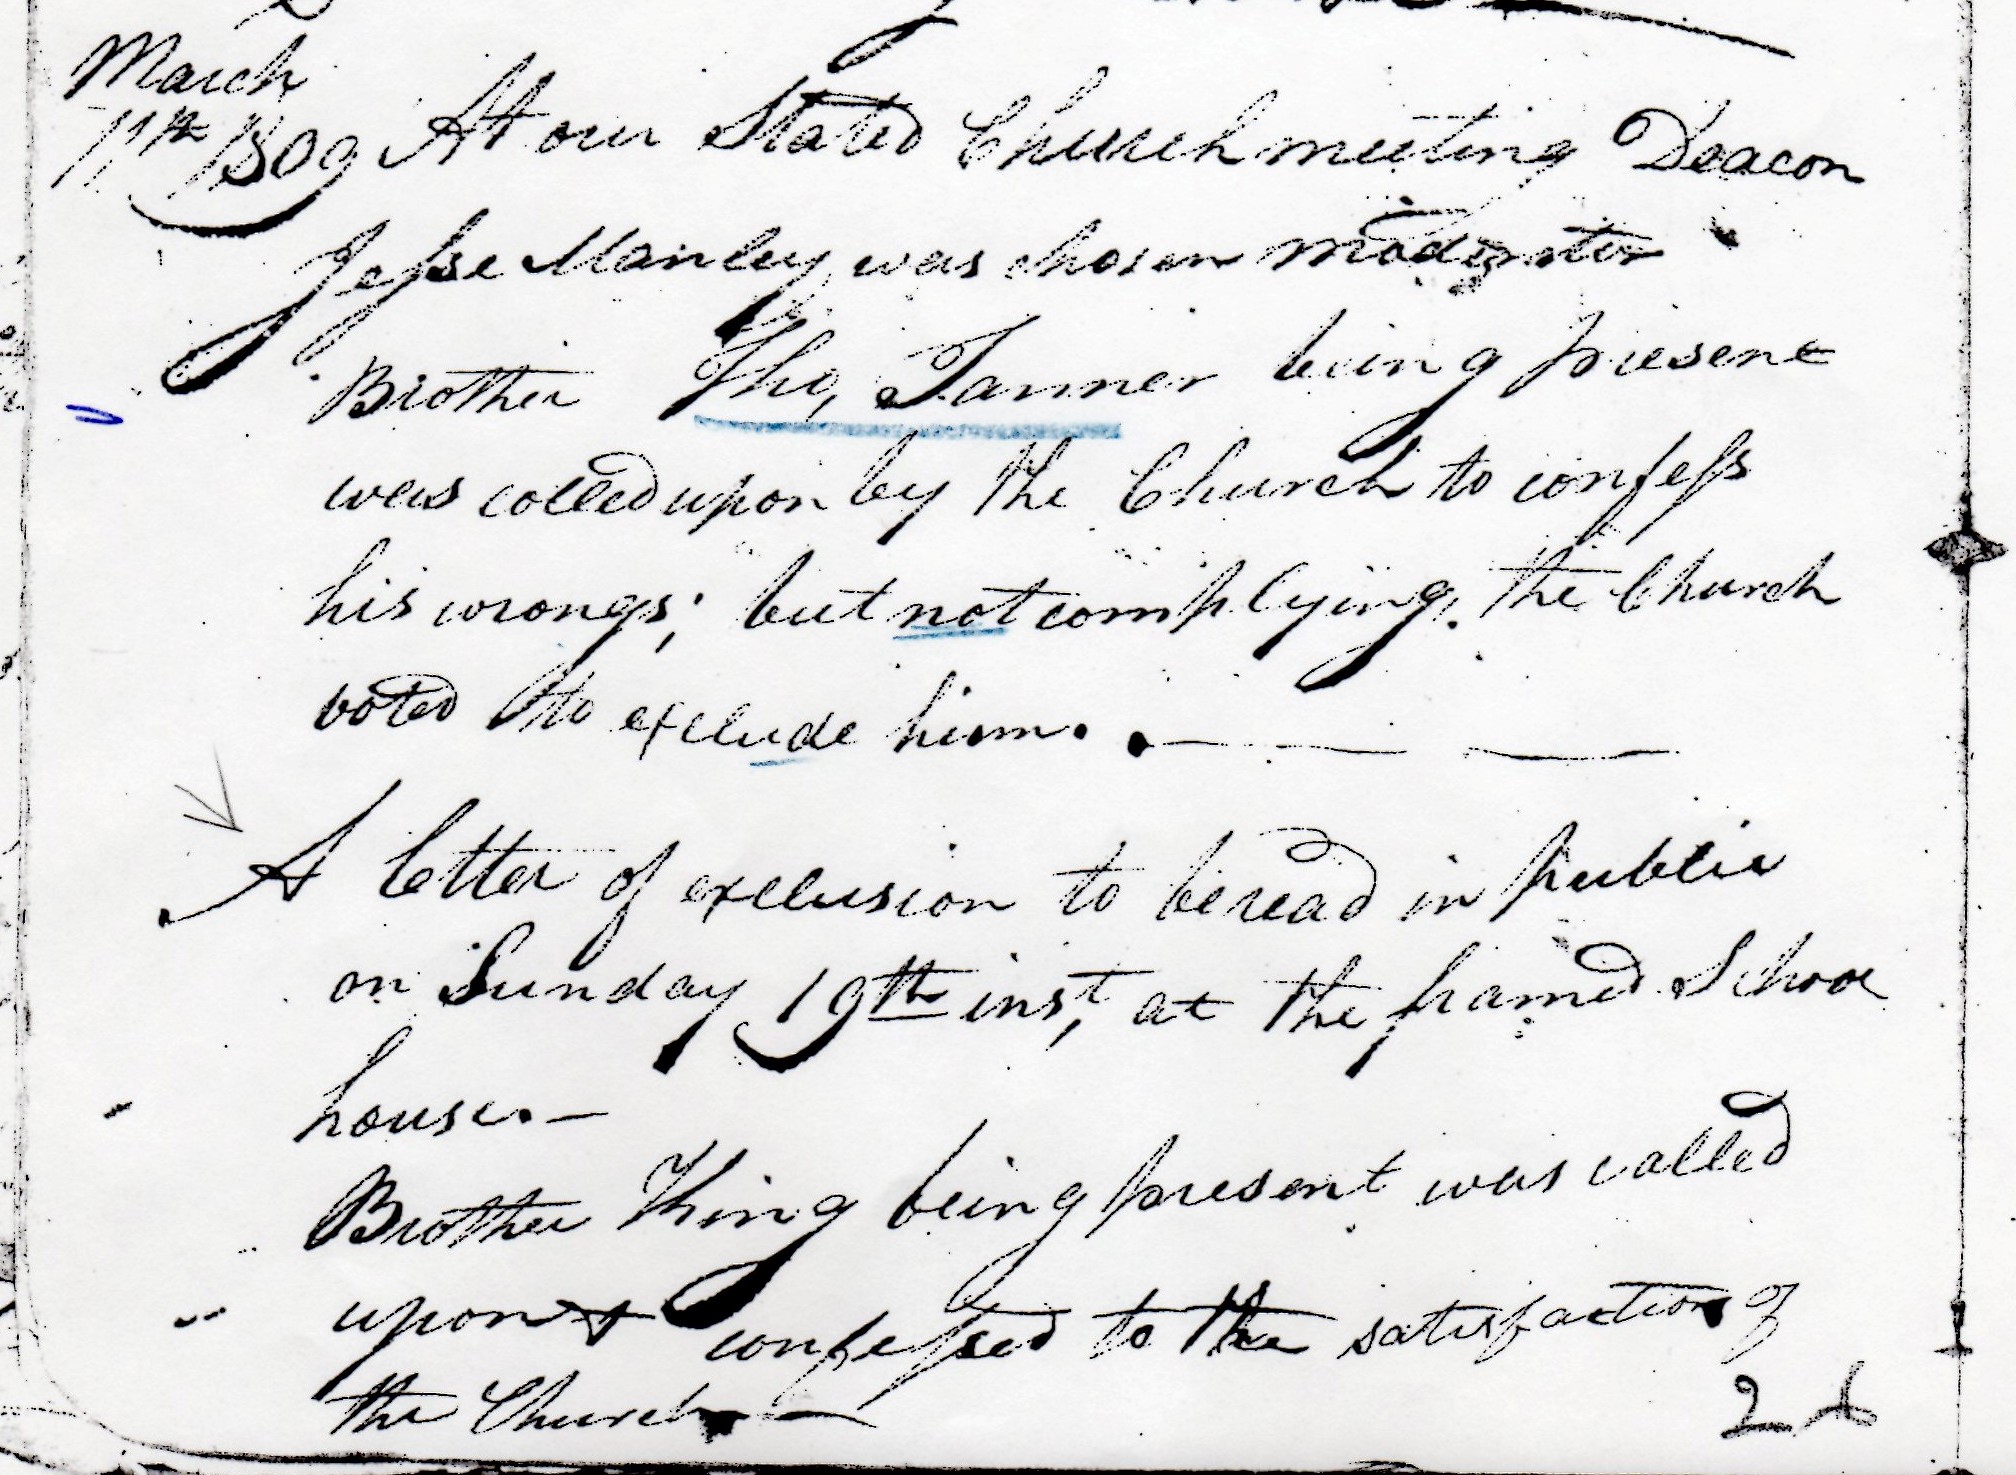 March
11th 1809 At our Stated Church meeting Deacon
Jesse Manley was chosen moderator
Brother Tho, Tanner being present
was called upon by the Church to confess
his wrongs; but not complying, the Church
voted to exclude him.
A letter of exclusion to be read in public
on Sunday 19th inst, at the framed School
house.—
Brother King being present was called
upon & confessed to the satisfaction of
the Church—